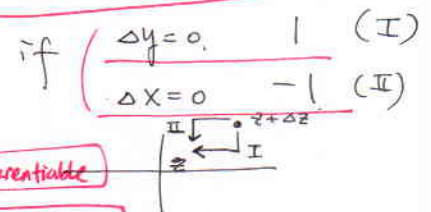 if
Δy = 0, 1 (I)
Δx = 0 -1 (II)
II z+Δz
z I
rentiable